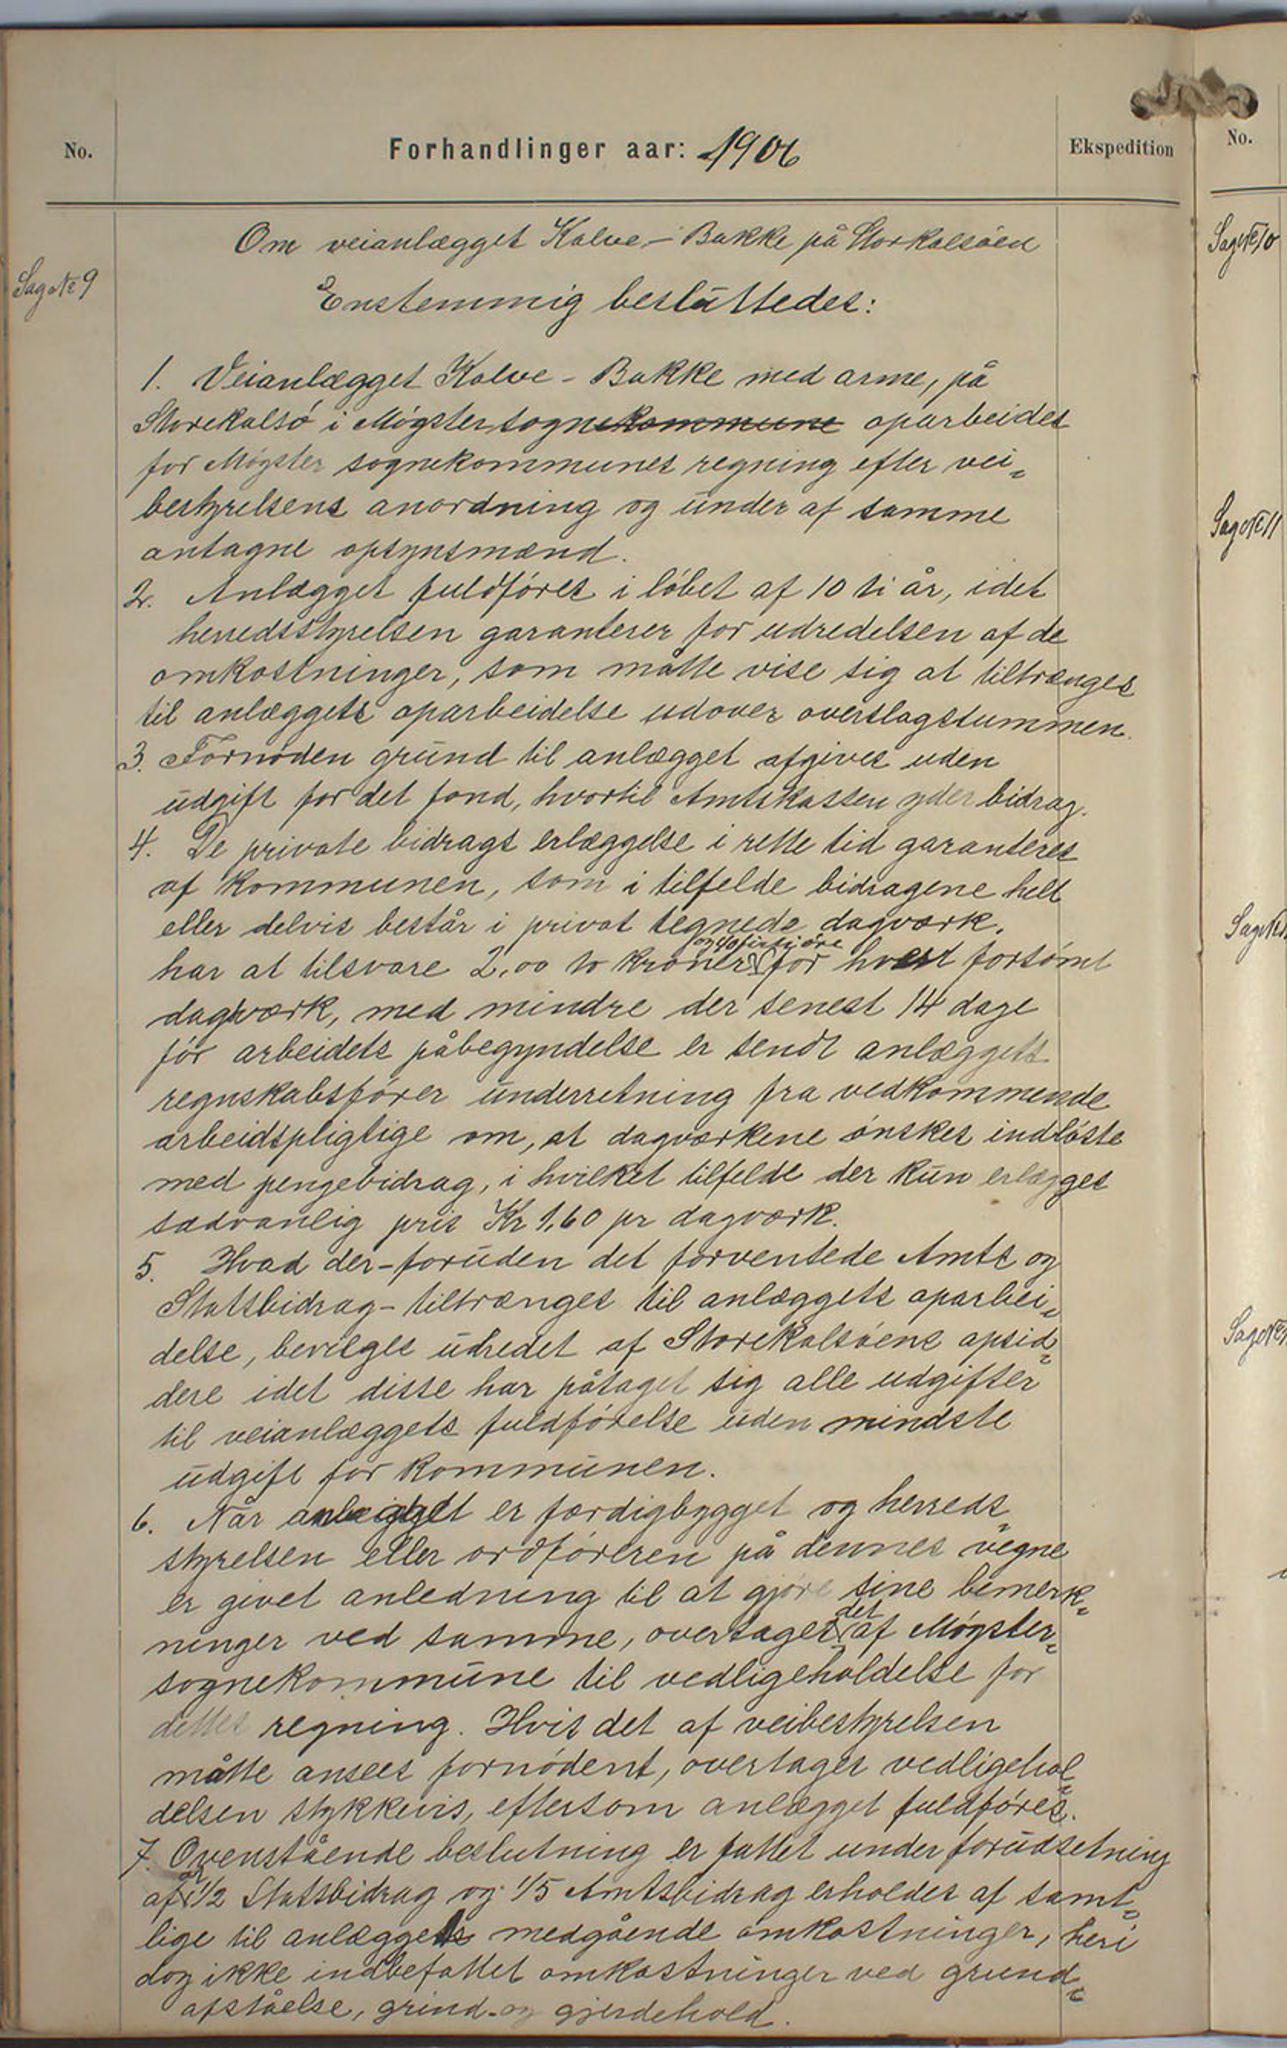 No.
Forhandlinger aar: 1906
Ekspedition
No.
Om veianlægget Kalve - Bakke på Storkalsöen
Sag № 9
Enstemmig beslúttedes:
1. Veianlægget Kalve - Bakke med arme, på
Storekalsö i Møgster sognekommune oparbeides
for Møgster sognekommunes regning efter vei-
bestyrelsens anordning og únder af samme
antagne opsynsmænd.
2. Anlægget fuldföres i löbet af 10 ti år, idet
herredsstyrelsen garanterer for udredelsen af de
omkostninger, som måtte vise sig at tiltrænges
til anlæggets oparbeidelse udover overslagssummen.
3. Fornöden grúnd til anlægget afgives uden
údgift for det fond, hvortil Amtskassen yder bidrag.
4. De private bidrags erlæggelse i rette tid garanteres
af kommunen, som i tilfelde bidragene helt
eller delvis består i privat tegnede dagværk,
har at tilsvare 2,00 to kroner og 40 firti öre for hvert forsömt
dagværk, med mindre der senest 14 dage
för arbeidets påbegyndelse er sendt anlæggets
regnskabsförer únderretning fra vedkommende
arbeidspligtige om, at dagværkene önskes indlöste
med pengebidrag, i hvilket tilfelde der kún erlægges
sædvanlig pris Kr 1,60 pr dagværk.
5. Hvad der - forúden det forventede Amts og
Statsbidrag - tiltrænges til anlæggets oparbei-
delse, bevilges údredet af Storekalsöens opsid-
dere idet disse har påtaget sig alle udgifter
til veianlæggets fuldförelse úden mindste
údgift for kommúnen.
6. Når anlægget er færdigbygget og herreds-
styrelsen eller ordföreren på dennes vegne
er givet anledning til at gjöre sine bemerk-
ninger ved samme, overtages det af Møgster-
sognekommúne til vedligeholdelse for
dettes regning. Hvis det af veibestyrelsen
måtte ansees fornödent, overtages vedligehol-
delsen stykkevis, eftersom anlægget fuldföres.
7. Ovenstående beslutning er fattet under forúdsetning
af at 1/2 Statsbidrag og 1/5 Amtsbidrag erholdes af samt-
lige til anlæggets medgående omkostninger, heri
dog ikke indbefattet omkostninger ved grund-
afståelse, grind- og gjerdehold.
Sag № 10
Sag № 11